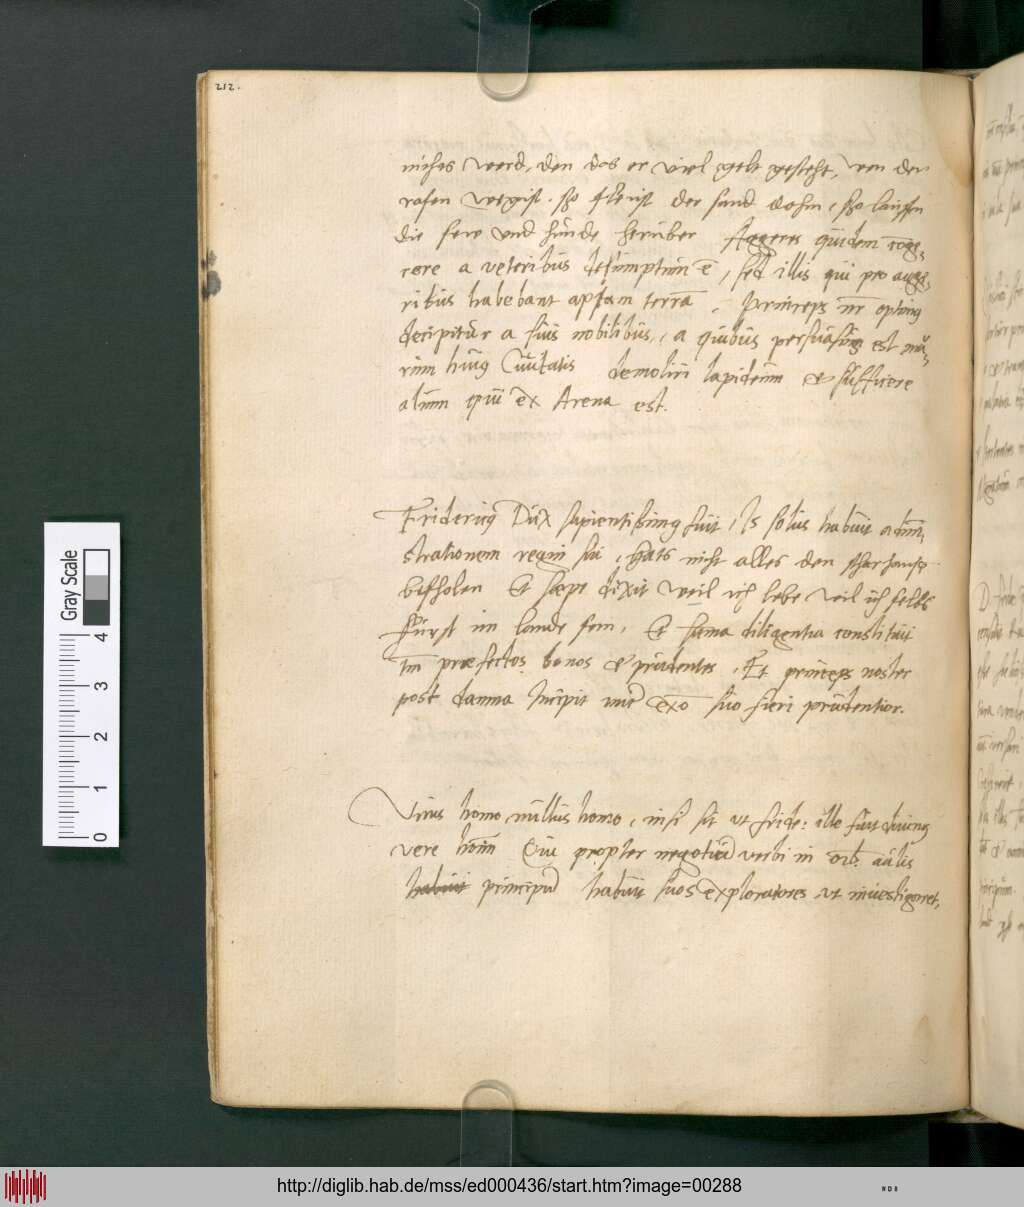 212.
nichts werd, den das er viel gelt gestehet, wen der
rasen wegist. szo fleust der sand dohin, szo lauffen
die sew und hunde heruber Aggeres quidem
a veteribus desumptum ē, sed illis qui pro agge,
ribus habebant aptam terrā, Princeps nr̄
decipitur a suis nobilibus, a quibus est mu,
rum huius Civitatis demoliri lapideum et sufficere
alium qui ex Arena est.
Fridericus Dux sapientissimus fuit, Is solus habuit adm̄i,
strationem regni sui, hats nicht alles den
befholen Et saepe dixit weil ich lebe wil ich selbs
Fürst im lande sein, Et summa diligentia constituit
tm̄ praefectos bonos et prudentes, Et princeps noster
post damna incipit suo fieri prudentior.
Unus homo nullus homo, nisi sit ut Fride: ille fuit divinus
vere Qui propter negotium verbi in
habuit principum habuit suos exploratores ut investigaret,
Gray Scale
4
3
2
1
0
http://diglib.hab.de/mss/ed000436/start.htm?image=00288